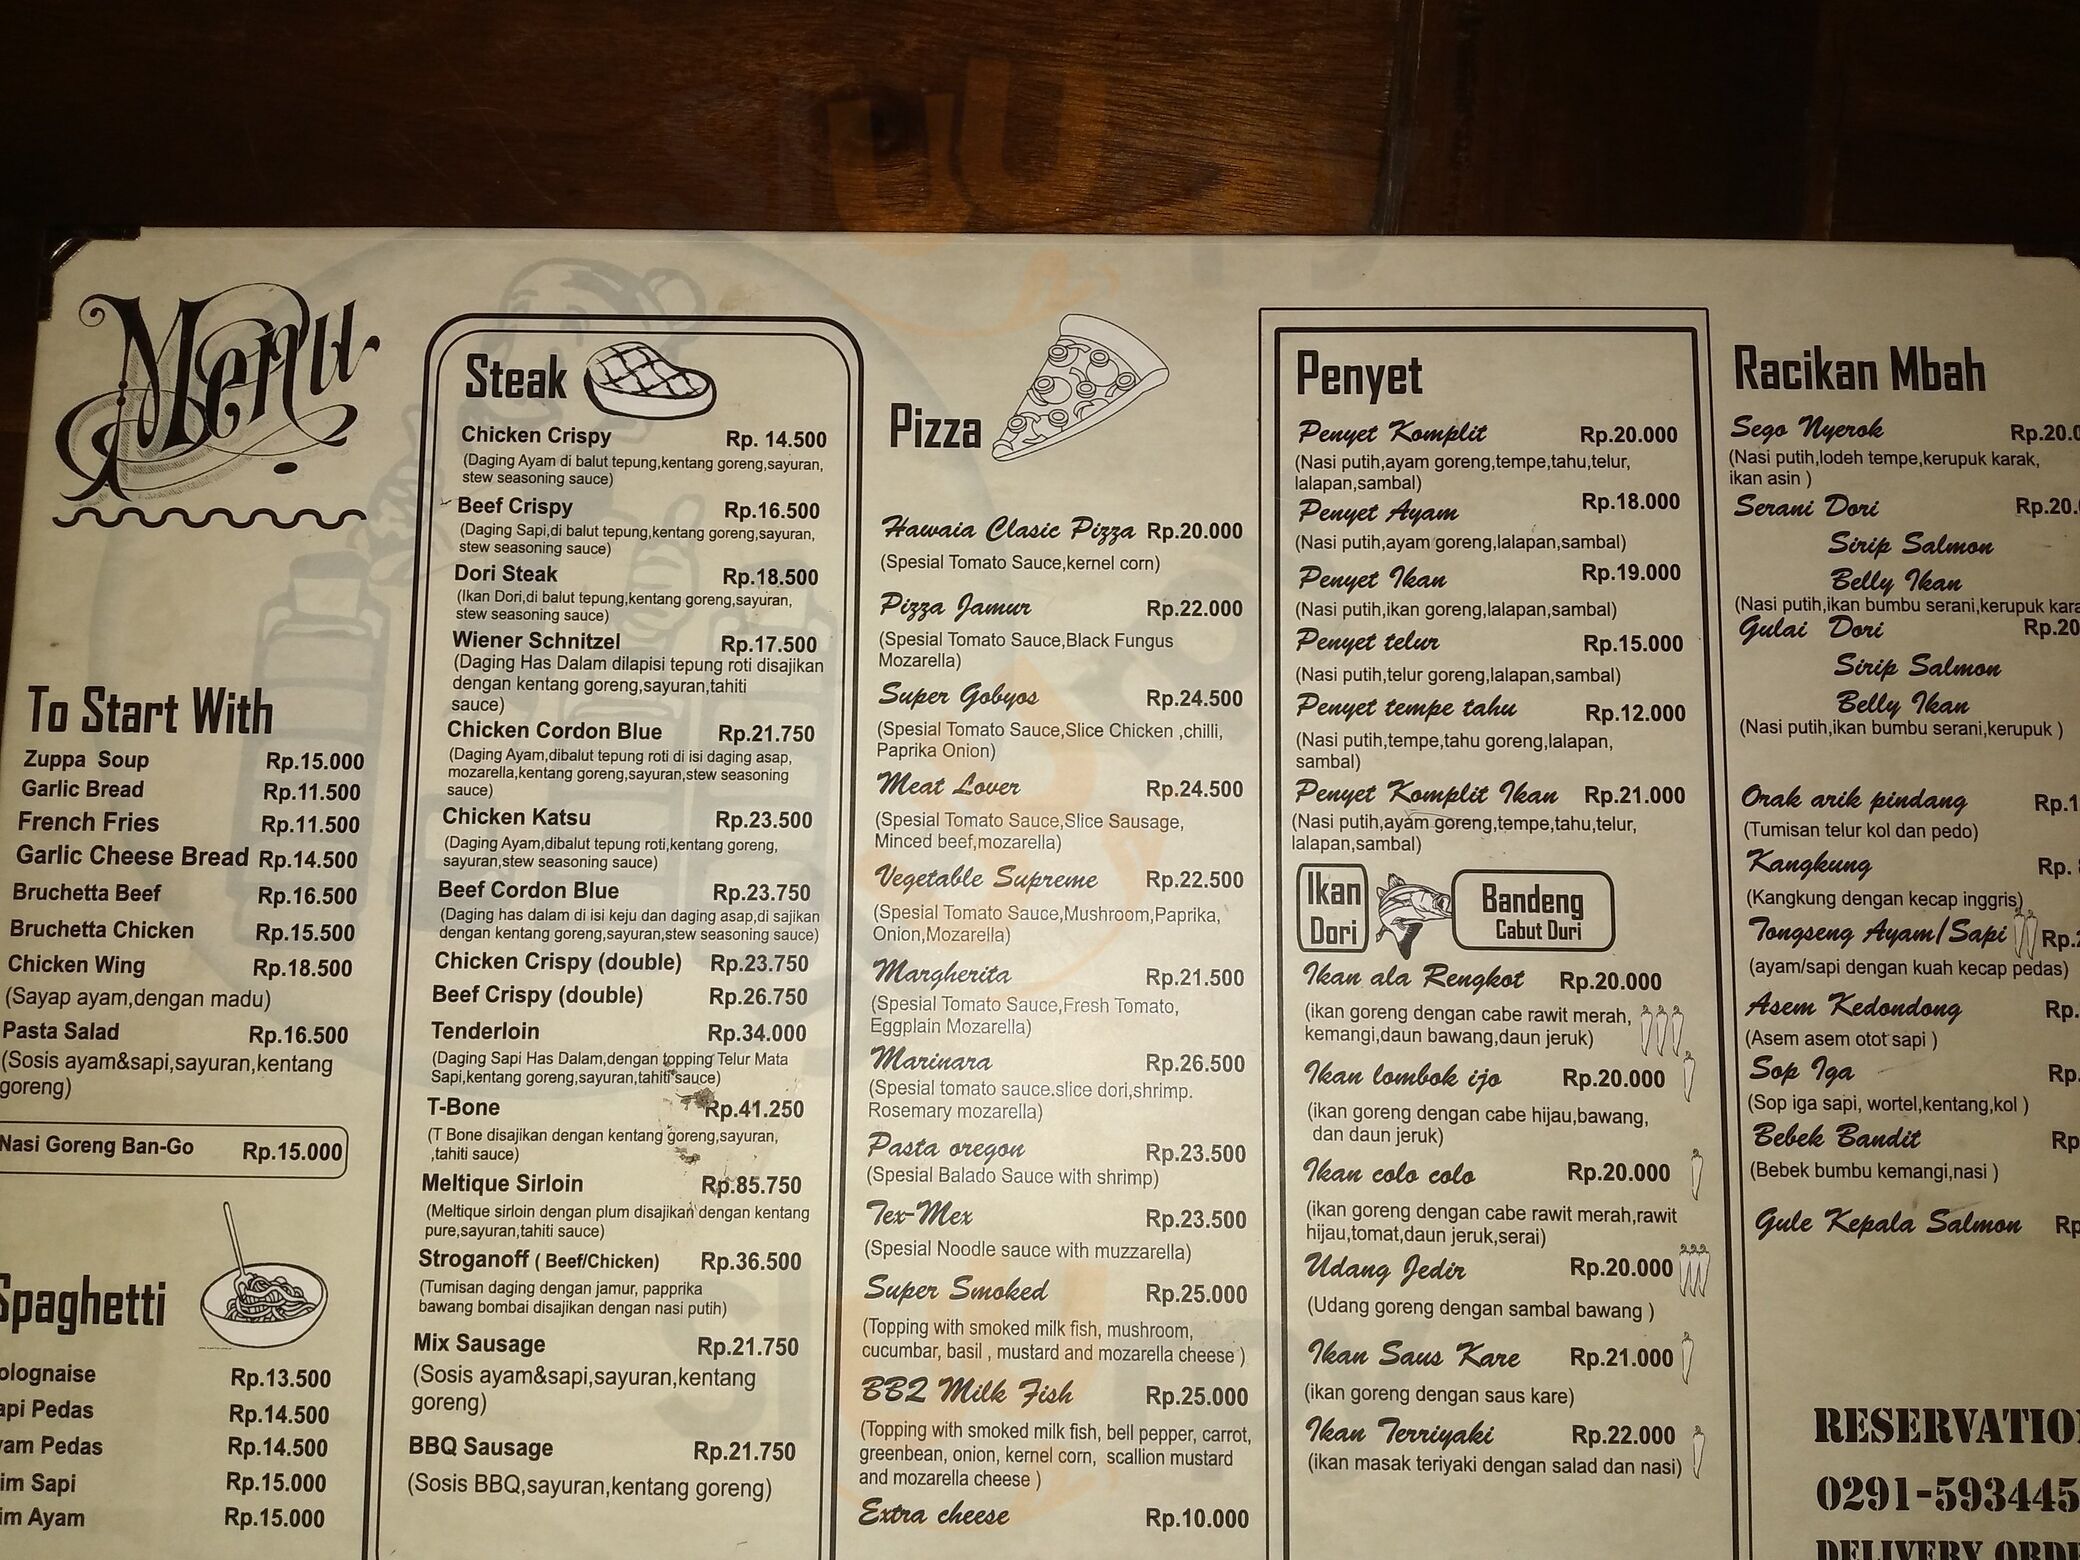 Menu
To Start With
Zuppa Soup Rp.15.000
Garlic Bread Rp.11.500
French Fries Rp.11.500
Garlic Cheese Bread Rp.14.500
Bruchetta Beef Rp.16.500
Bruchetta Chicken Rp.15.500
Chicken Wing Rp.18.500
(Sayap ayam,dengan madu)
Pasta Salad Rp.16.500
(Sosis ayam&sapi,sayuran,kentang
goreng)
Nasi Goreng Ban-Go Rp.15.000
Spaghetti
olognaise Rp.13.500
api Pedas Rp.14.500
yam Pedas Rp.14.500
im Sapi Rp.15.000
im Ayam Rp.15.000
Steak
Chicken Crispy Rp. 14.500
(Daging Ayam di balut tepung,kentang goreng,sayuran,
stew seasoning sauce)
Beef Crispy Rp.16.500
(Daging Sapi,di balut tepung,kentang goreng,sayuran,
stew seasoning sauce)
Dori Steak Rp.18.500
(Ikan Dori,di balut tepung,kentang goreng,sayuran,
stew seasoning sauce)
Wiener Schnitzel Rp.17.500
(Daging Has Dalam dilapisi tepung roti disajikan
dengan kentang goreng,sayuran,tahiti
sauce)
Chicken Cordon Blue Rp.21.750
(Daging Ayam,dibalut tepung roti di isi daging asap,
mozarella,kentang goreng,sayuran,stew seasoning
sauce)
Chicken Katsu Rp.23.500
(Daging Ayam,dibalut tepung roti,kentang goreng,
sayuran,stew seasoning sauce)
Beef Cordon Blue Rp.23.750
(Daging has dalam di isi keju dan daging asap,di sajikan
dengan kentang goreng,sayuran,stew seasoning sauce)
Chicken Crispy (double) Rp.23.750
Beef Crispy (double) Rp.26.750
Tenderloin Rp.34.000
(Daging Sapi Has Dalam,dengan topping Telur Mata
Sapi,kentang goreng,sayuran,tahiti sauce)
T-Bone Rp.41.250
(T Bone disajikan dengan kentang goreng,sayuran,
,tahiti sauce)
Meltique Sirloin Rp.85.750
(Meltique sirloin dengan plum disajikan dengan kentang
pure,sayuran,tahiti sauce)
Stroganoff ( Beef/Chicken) Rp.36.500
(Tumisan daging dengan jamur, papprika
bawang bombai disajikan dengan nasi putih)
Mix Sausage Rp.21.750
(Sosis ayam&sapi,sayuran,kentang
goreng)
BBQ Sausage Rp.21.750
(Sosis BBQ,sayuran,kentang goreng)
Pizza
Hawaia Clasic Pizza Rp.20.000
(Spesial Tomato Sauce,kernel corn)
Pizza Jamur Rp.22.000
(Spesial Tomato Sauce,Black Fungus
Mozarella)
Super Gobyos Rp.24.500
(Spesial Tomato Sauce,Slice Chicken ,chilli,
Paprika Onion)
Meat Lover Rp.24.500
(Spesial Tomato Sauce,Slice Sausage,
Minced beef,mozarella)
Vegetable Supreme Rp.22.500
(Spesial Tomato Sauce,Mushroom,Paprika,
Onion,Mozarella)
Margherita Rp.21.500
(Spesial Tomato Sauce,Fresh Tomato,
Eggplain Mozarella)
Marinara Rp.26.500
(Spesial tomato sauce.slice dori,shrimp.
Rosemary mozarella)
Pasta oregon Rp.23.500
(Spesial Balado Sauce with shrimp)
Tex-Mex Rp.23.500
(Spesial Noodle sauce with muzzarella)
Super Smoked Rp.25.000
(Topping with smoked milk fish, mushroom,
cucumbar, basil , mustard and mozarella cheese )
BBQ Milk Fish Rp.25.000
(Topping with smoked milk fish, bell pepper, carrot,
greenbean, onion, kernel corn, scallion mustard
and mozarella cheese )
Extra cheese Rp.10.000
Penyet
Penyet Komplit Rp.20.000
(Nasi putih,ayam goreng,tempe,tahu,telur,
lalapan,sambal)
Penyet Ayam Rp.18.000
(Nasi putih,ayam goreng,lalapan,sambal)
Penyet Ikan Rp.19.000
(Nasi putih,ikan goreng,lalapan,sambal)
Penyet telur Rp.15.000
(Nasi putih,telur goreng,lalapan,sambal)
Penyet tempe tahu Rp.12.000
(Nasi putih,tempe,tahu goreng,lalapan,
sambal)
Penyet Komplit Ikan Rp.21.000
(Nasi putih,ayam goreng,tempe,tahu,telur,
lalapan,sambal)
Ikan
Dori
Bandeng
Cabut Duri
Ikan ala Rengkot Rp.20.000
(ikan goreng dengan cabe rawit merah,
kemangi,daun bawang,daun jeruk)
Ikan lombok ijo Rp.20.000
(ikan goreng dengan cabe hijau,bawang,
dan daun jeruk)
Ikan colo colo Rp.20.000
(ikan goreng dengan cabe rawit merah,rawit
hijau,tomat,daun jeruk,serai)
Udang Jedir Rp.20.000
(Udang goreng dengan sambal bawang )
Ikan Saus Kare Rp.21.000
(ikan goreng dengan saus kare)
Ikan Terriyaki Rp.22.000
(ikan masak teriyaki dengan salad dan nasi)
Racikan Mbah
Sego Nyerok Rp.20.0
(Nasi putih,lodeh tempe,kerupuk karak,
ikan asin )
Serani Dori Rp.20.
Sirip Salmon
Belly Ikan
(Nasi putih,ikan bumbu serani,kerupuk kara
Gulai Dori Rp.20
Sirip Salmon
Belly Ikan
(Nasi putih,ikan bumbu serani,kerupuk )
Orak arik pindang Rp.1
(Tumisan telur kol dan pedo)
Kangkung Rp.
(Kangkung dengan kecap inggris)
Tongseng Ayam/Sapi Rp.2
(ayam/sapi dengan kuah kecap pedas)
Asem Kedondong Rp.
(Asem asem otot sapi )
Sop Iga Rp.
(Sop iga sapi, wortel,kentang,kol )
Bebek Bandit Rp
(Bebek bumbu kemangi,nasi )
Gule Kepala Salmon Rp
RESERVATIO
0291-593445
DELIVERY ORDE